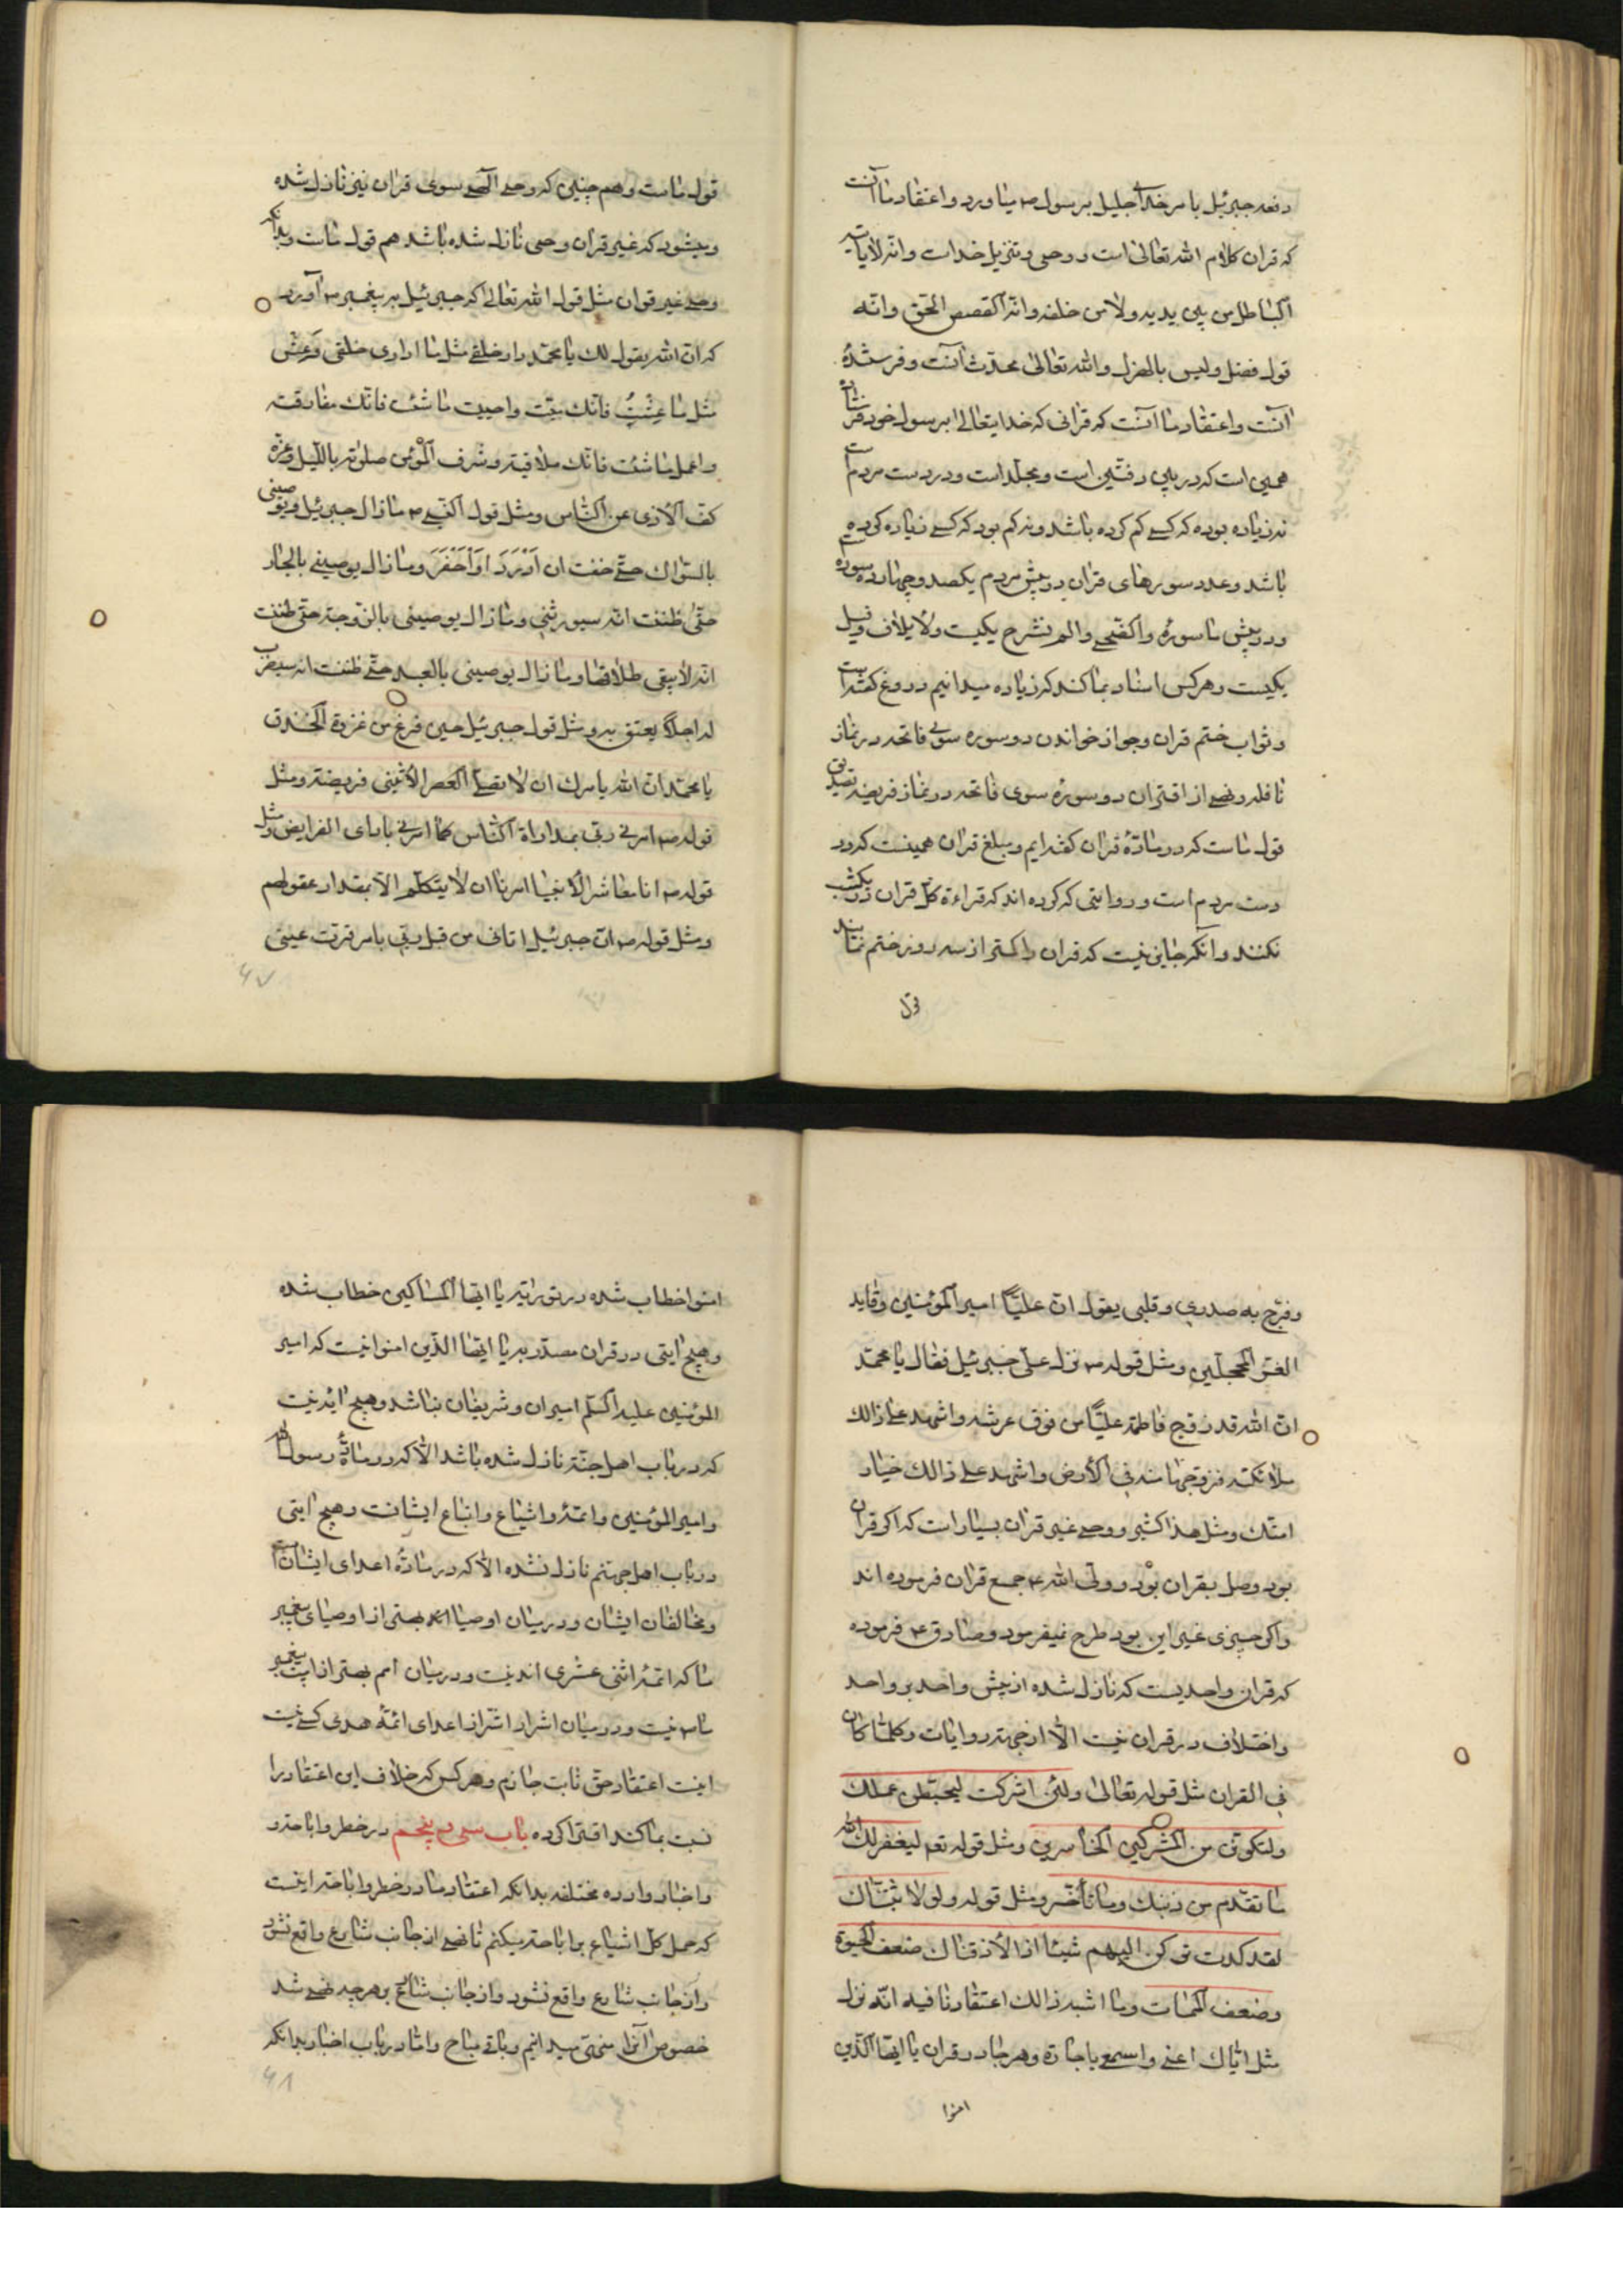 دفعه جبرئیل بامر خدای جلیل بر رسول ص میاورد واعتقاد ما آنست
که قران کلام الله تعالی است و وحی وتنزیل خداست وانه لایاتیه
الباطل من بین یدیه ولا من خلفه وانه القصص الحق وانه
قول فصل ولیس بالهزل والله تعالی محدث آنست وفرستندهٔ
آنست واعتقاد ما آنست که قرانی که خدایتعالی بر رسول خود فرستاده
همین است که در بین دفتین است ومجلد است ودر دست مردم است
نه زیاده بوده که کسی کم کرده باشد ونه کم بود که کسی زیاده کرده
باشد وعدد سورهای قران در پیش مردم یکصد وچهارده سوره است
ودر پیش ما سورهٔ والضحی والم نشرح یکیست ولایلاف وفیل
یکیست وهرکس اسناد بما کند که زیاده میدانیم دروغ گفته است
وثواب ختم قران وجواز خواندن دو سوره سوی فاتحه در نماز
نافله ونهی از اقتران دو سورهٔ سوی فاتحه در نماز فریضه تصدیق
قول ماست که در مادهٔ قران گفته ایم ومبلغ قران همینست که در
دست مردم است وروایتی که کرده اند که قراءة کل قران در یکشب
نکنند وآنکه جایز نیست که قران را کمتر از سه روز ختم نمایند
قول
قول ماست وهم چنین که وحی الهی سوی قران نیز نازل شده
ومیشود که غیر قران وحی نازل شده باشد هم قول ماست وبدانکه
وحی غیر قران مثل قول الله تعالی که جبرئیل بر پیغمبر ص آورد
که ان الله یقول لك یا محمد دار خلقی مثل ما اداری خلقی وعش
مثل ما عشت فانك میت واحبب ما شئت فانك مفارقته
واعمل ما شئت فانك ملاقیه وشرف المؤمن صلوته باللیل وعزه
کف الاذی عن الناس ومثل قول النبی ص ما زال جبرئیل یوصینی
بالسواك حتی خفت ان ادرد او احفر وما زال یوصینی بالجار
حتی ظننت انه سیورثنی وما زال یوصینی بالزوجة حتی ظننت
انه لا یبغی طلاقها وما زال یوصینی بالعبد حتی ظننت انه سیضرب
له اجلا یعتق به ومثل قول جبرئیل حین فرغ من غزوة الخندق
یا محمد ان الله یامرك ان لا تصلی العصر الا ببنی قریضة ومثل
قوله ص امرنی ربی بمداراة الناس کما امرنی باداء الفرایض ومثل
قوله ص انا معاشر الانبیا امرنا ان لا یتکلم الا بمقدار عقولهم
ومثل قوله ص ان جبرئیل اتانی من قبل ربی بامر قرت عینی
۶۷
وفرح به صدری وقلبی یقول ان علیا امیر المؤمنین وقاید
الغر المحجلین ومثل قوله ص نزل علی جبرئیل فقال یا محمد
ان الله قد زوج فاطمة علیا من فوق عرشه واشهد علی ذالك
ملائکته فزوجها منه فی الارض واشهد علی ذالك خیار
امتك ومثل هذا کثیر ووحی غیر قران بسیار است که اگر قران
بود وصل بقران بود وولی الله ع جمع قران فرموده اند
واگر چیزی غیر این بود طرح نمیفرمود وصادق ع فرموده
که قران واحدیست که نازل شده از پیش واحد بر واحد
واختلاف در قران نیست الا از جهة روایات وکلما کان
فی القران مثل قوله تعالی ولئن اشرکت لیحبطن عملك
ولتکونن من المشرکین الخاسرین ومثل قوله تعم لیغفر لك الله
ما تقدم من ذنبك وما تأخر ومثل قوله ولولا ثبتناك
لقد کدت ترکن الیهم شیئا اذا لاذقناك ضعف الحیوة
وضعف الممات وما اشبه ذالك اعتقادنا فیه انه نزل
مثل ایاك اعنی واسمع یا جارة وهر جا در قران یا ایها الذین
امنوا
امنوا خطاب شده در توراتیه یا ایها المساکین خطاب شده
وهیچ ایتی در قران مصدر به یا ایها الذین امنوا نیست که امیر
المؤمنین علیه السلم امیران وشریفان نباشد وهیچ ایه نیست
که در باب اهل جنة نازل شده باشد الا که در مادهٔ رسول الله
وامیر المؤمنین وائمه واشیاع واتباع ایشانست وهیچ ایتی
در باب اهل جهنم نازل نشده الا که در مادهٔ اعدای ایشان است
ومخالفان ایشان ودر میان اوصیا بهتر از اوصیای پیغمبر
ما که ائمه اثنی عشری اند نیست ودر میان امم بهتر از امت پیغمبر
ما ص نیست ودر میان اشرار اشر از اعدای ائمهٔ هدی کسی نیست
اینست اعتقاد حق ثابت جازم وهرکس که خلاف این اعتقاد را
نسبت بما کند افترا کرده باب سی و پنجم در خطر واباحة و
واخبار وارده مختلفه بدانکه اعتقاد ما در خطر واباحة اینست
که حمل کل اشیاع بر اباحة میکنم تا نهی از جانب شارع واقع نشود
واز جانب شارع واقع نشود واز جانب شارع بر هر چه نهی شد
خصوص آنرا منهی میدانیم وباقی مباح واما در باب اخبار بدانکه
۶۸